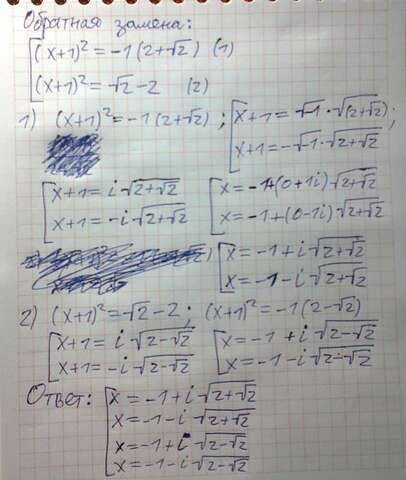 Обратная замена:
[(x+1)² = -1(2+√2) (1)
[(x+1)² = √2-2 (2)
1) (x+1)² = -1(2+√2) ; [x+1 = √-1·√(2+√2) ;
[x+1 = -√-1·√(2+√2)
[x+1 = i√(2+√2) [x = -1+(0+1i)√(2+√2)
[x+1 = -i√(2+√2) [x = -1+(0-1i)√(2+√2)
[x = -1+i√(2+√2)
[x = -1-i√(2+√2)
2) (x+1)² = √2-2; (x+1)² = -1(2-√2)
[x+1 = i√(2-√2) [x = -1+i√(2-√2)
[x+1 = -i√(2-√2) [x = -1-i√(2-√2)
Ответ: [x = -1+i√(2+√2)
[x = -1-i√(2+√2)
[x = -1+i√(2-√2)
[x = -1-i√(2-√2)